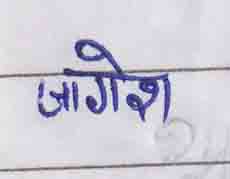 जागेश